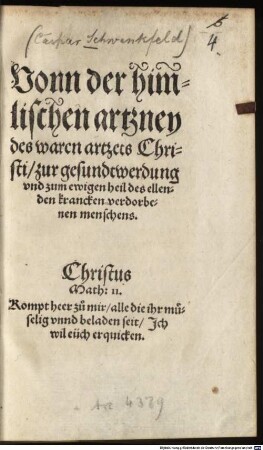 (Caspar Schwenkfeld)
4.
Vonn der him-
lischen artzney
des waren artzets Chri-
sti/zur gesundtwerdung
vnd zum ewigen heil des ellen-
den krancken verdorbe-
nen menschens.
Christus
Math: 11.
Kompt heer zů mir/alle die ihr mů-
selig vnnd beladen seit/ Jch
wil eüch erquicken.
4389